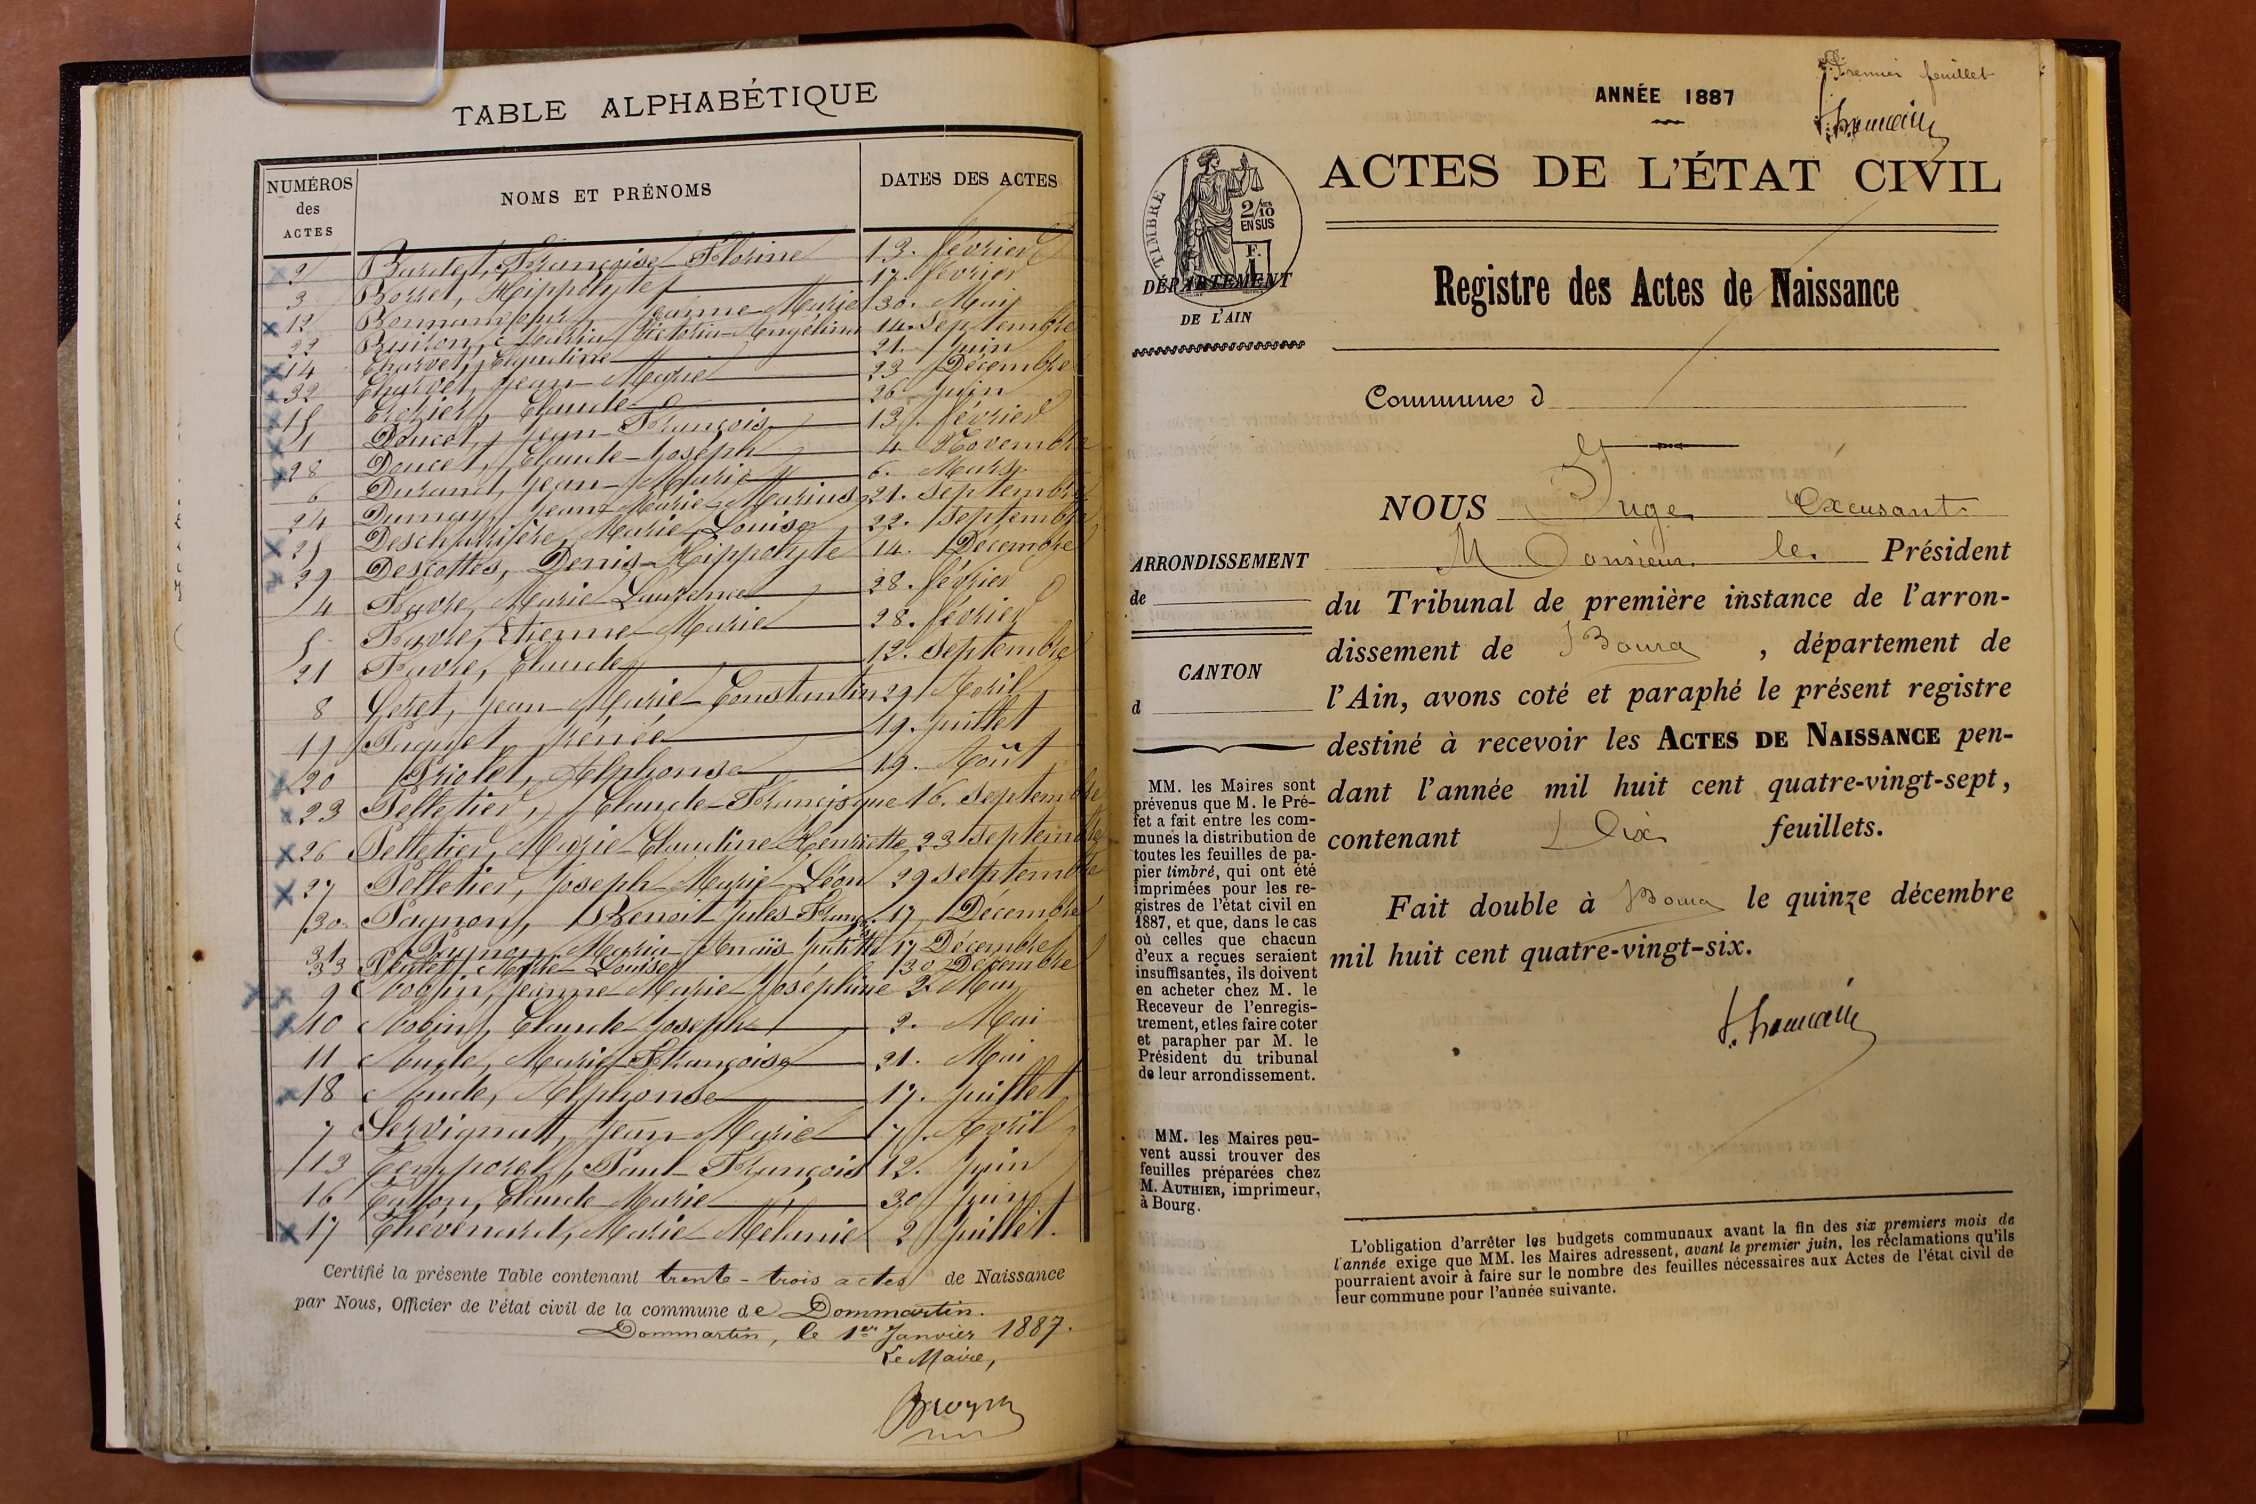 TABLE ALPHABÉTIQUE
NUMÉROS des ACTES
NOMS ET PRÉNOMS
DATES DES ACTES
2 Françoise Florine 13. février
3 Borret, Hippolyte 17. février
12 Jeanne Marie 30. Mai
22 Maria Victoria Angélina 14. Septembre
14 Charvet, Claudine 21. Juin
32 Charvet, Jean Marie 23 Décembre
15 Claude 26 Juin
1 Doucet, Jean François 13. février
28 Doucet, Claude Joseph 4. Novembre
6 Durand, Jean Marie 6. Mars
24 Dumay, Jean Marie Marius 21. Septembre
25 Marie Louise 22. Septembre
29 Descottes, Denis Hippolyte 14. Décembre
4 Favre, Marie Laurence 28. février
5 Favre, Etienne Marie 28. février
21 Favre, Claude 12. Septembre
8 Geret, Jean Marie Constantin 29 Avril
19 Paquet Irénée 19. Juillet
20 Alphonse 19. Août
23 Pelletier, Claude Francisque 16. Septembre
26 Pelletier, Marie Claudine Henriette 23 Septembre
27 Pelletier, Joseph Marie Léon 29 Septembre
30. Pagnon, Benoit Jules 17 Décembre
31 Pagnon Maria Anaïs 17 Décembre
33 Marie Louise 30 Décembre
9 Robin, Jeanne Marie Joséphine 2. Mai
10 Robin, Claude Joseph 2. Mai
11 Rude, Marie Françoise 21. Mai
18 Rude, Alphonse 17. Juillet
7 Servignat, Jean Marie 7. Avril
13 Temporel, Paul François 12. Juin
16 Tallon, Claude Marie 30 Juin
17 Thévenard, Marie Mélanie 2 Juillet.
Certifié la présente Table contenant trente-trois actes de Naissance
par Nous, Officier de l'état civil de la commune de Dommartin.
Dommartin, le 1er Janvier 1887.
Le Maire,
Premier feuillet
ANNÉE 1887
ACTES DE L'ÉTAT CIVIL
TIMBRE
2/10
EN SUS
F.
1
DÉPARTEMENT
DE L'AIN
Registre des Actes de Naissance
Commune d
NOUS Juge Excusant
Monsieur le Président
du Tribunal de première instance de l'arron-
dissement de Bourg, département de
l'Ain, avons coté et paraphé le présent registre
destiné à recevoir les ACTES DE NAISSANCE pen-
dant l'année mil huit cent quatre-vingt-sept,
contenant Dix feuillets.
Fait double à Bourg le quinze décembre
mil huit cent quatre-vingt-six.
ARRONDISSEMENT
de
CANTON
d
MM. les Maires sont
prévenus que M. le Pré-
fet a fait entre les com-
munes la distribution de
toutes les feuilles de pa-
pier timbré, qui ont été
imprimées pour les re-
gistres de l'état civil en
1887, et que, dans le cas
où celles que chacun
d'eux a reçues seraient
insuffisantes, ils doivent
en acheter chez M. le
Receveur de l'enregis-
trement, et les faire coter
et parapher par M. le
Président du tribunal
de leur arrondissement.
MM. les Maires peu-
vent aussi trouver des
feuilles préparées chez
M. AUTHIER, imprimeur,
à Bourg.
L'obligation d'arrêter les budgets communaux avant la fin des six premiers mois de
l'année exige que MM. les Maires adressent, avant le premier juin, les réclamations qu'ils
pourraient avoir à faire sur le nombre des feuilles nécessaires aux Actes de l'état civil de
leur commune pour l'année suivante.